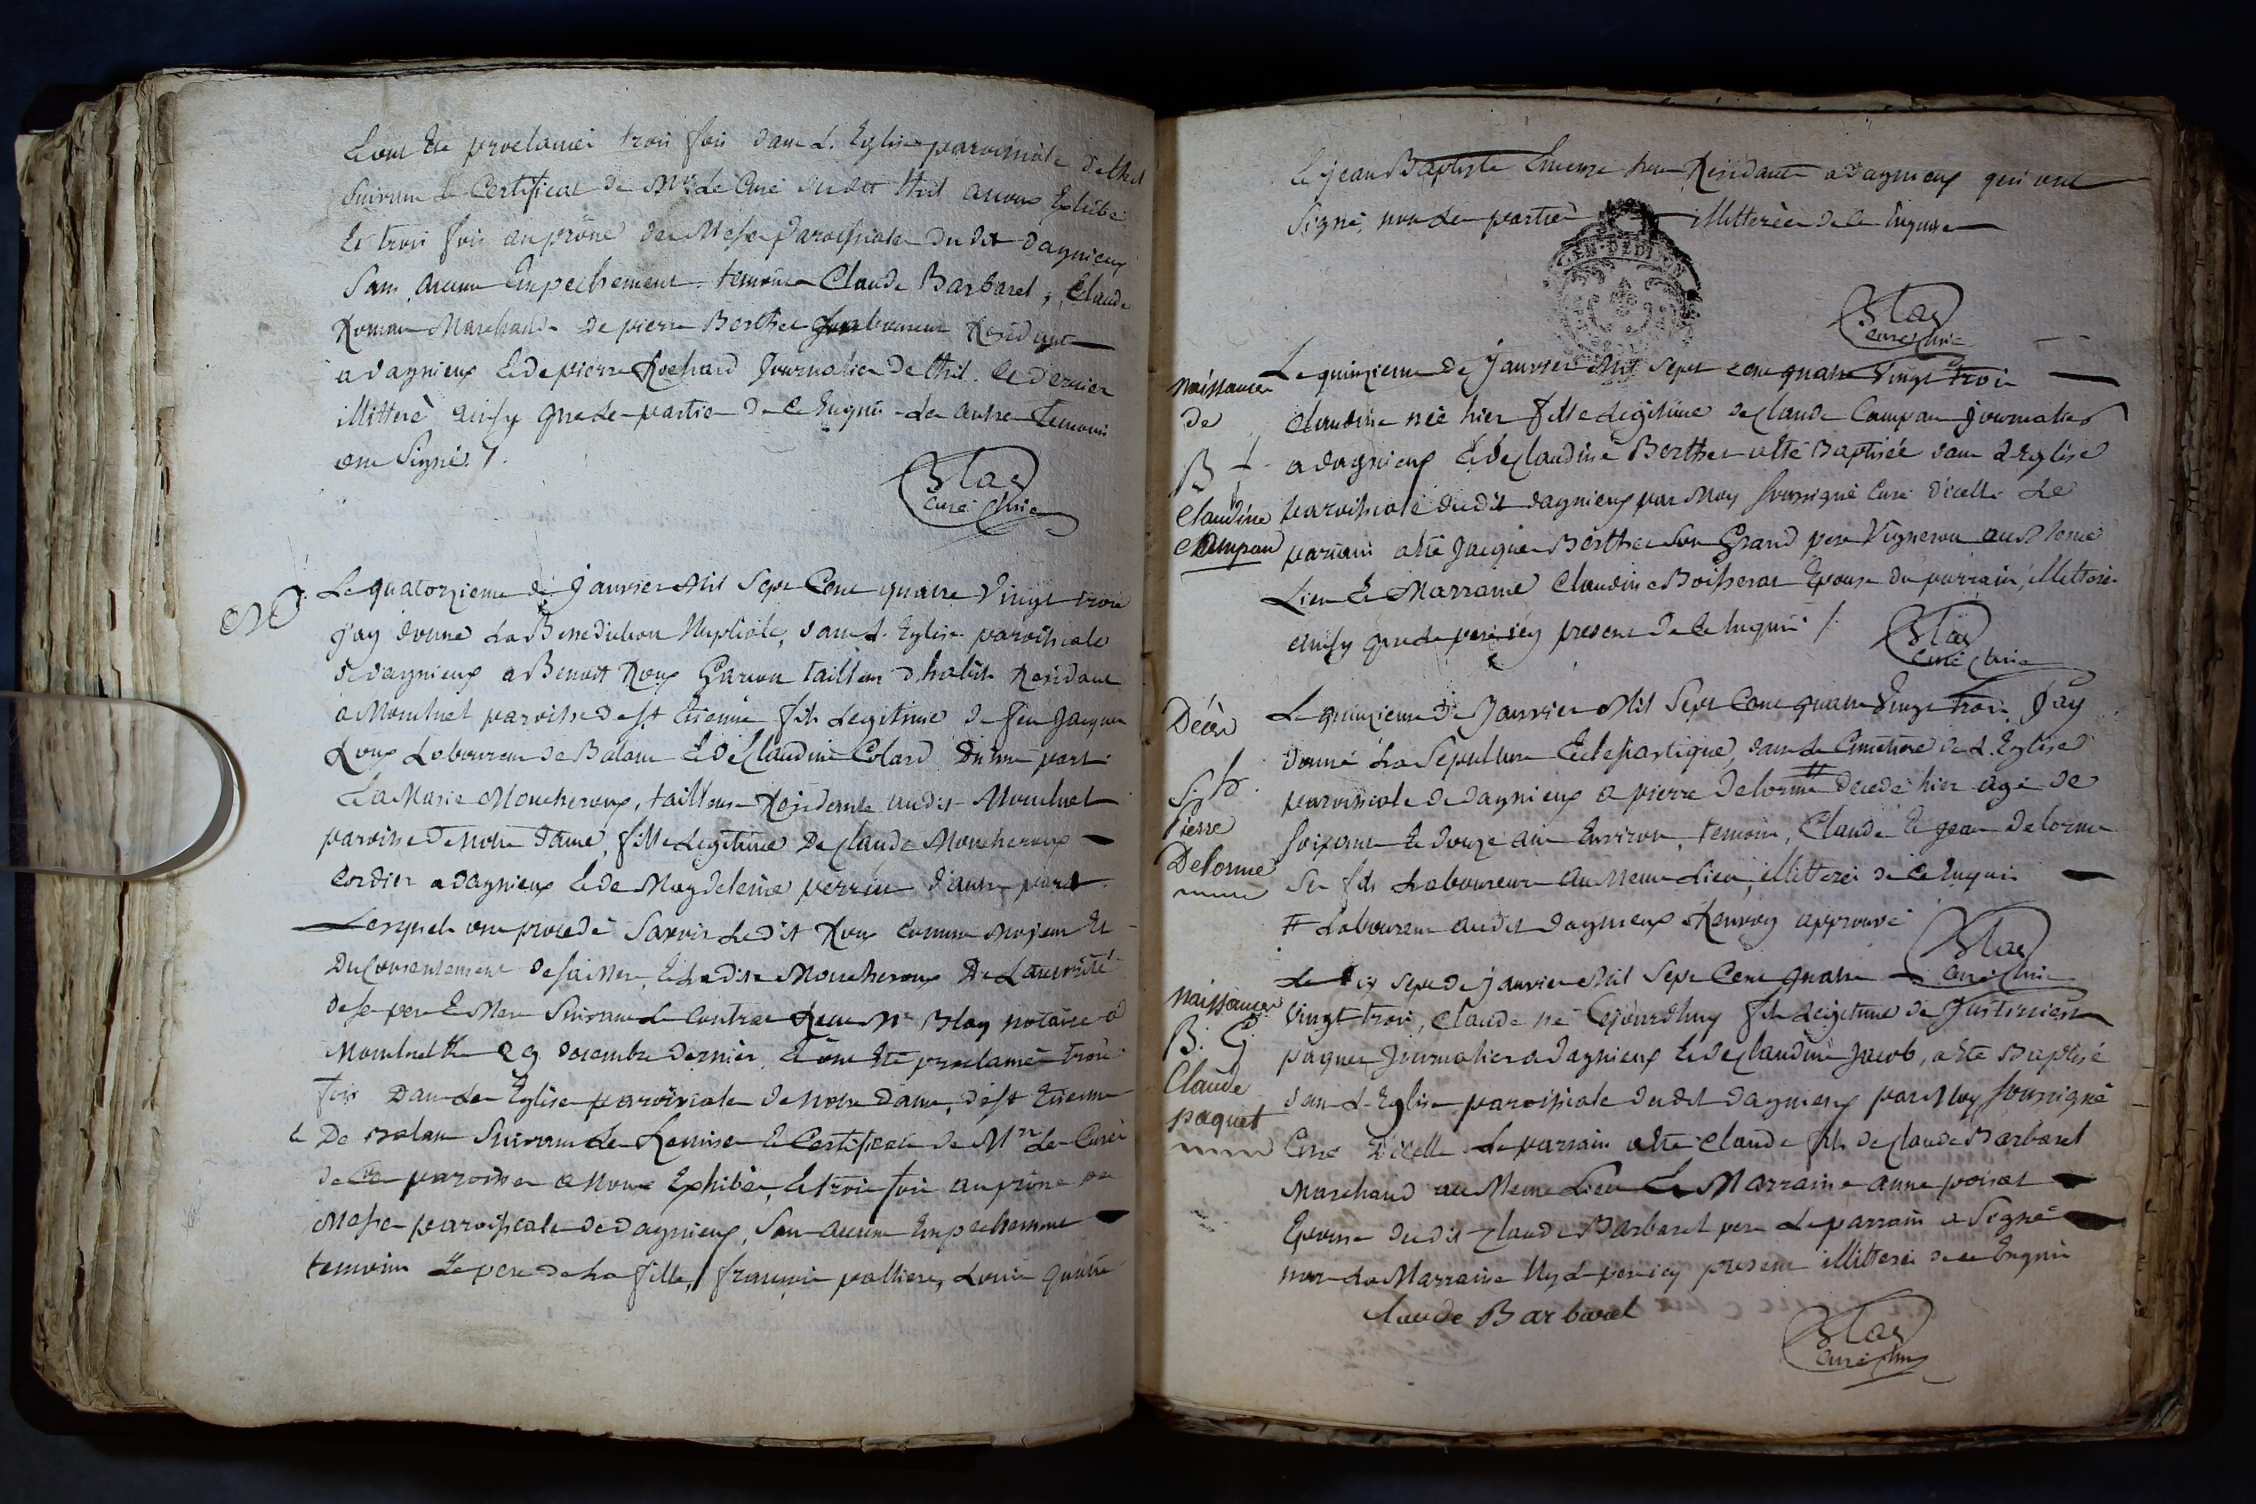 et ont été proclamés trois fois dans L. Eglise paroissiale de thil
suivant le Certificat de Mr. Le Curé dudit thil a nous Exhibé
Et trois fois au prône des Messes Paroissiales du dit dagnieux
sans aucun Empechement. temoins Claude Barbaret, Claude
Roman Marchands de pierre Berthet Laboureur Résidants
a dagnieux Et de pierre Rochard Journalier de thil. Ce dernier
illitteré ainsy que les parties de ce Enquis. Les autres temoins
ont Signé.
Blas
Curé
M.
Le quatorzieme de janvier Mil Sept Cent quatre Vingt trois
j'ay donné La Benediction Nuptiale, dans L. Eglise paroissiale
de dagnieux a Benoit Roux Garçon tailleur d'habits Residant
a Montluel paroisse de st Etienne fils Legitime de feu Jacques
Roux Laboureur de Balan Et de Claudine Colard D'une part
Et a Marie Moucheroux, tailleuse Residante audit Montluel
paroisse de notre dame, fille Legitime De Claude Moucheroux
Cordier a dagnieux Et de Magdeleine perrin d'autre part
Lesquels ont procedé Savoir Le dit Roux Comme Majeur Et
Du Consentement de sa Mere, Et La dite Moucheroux De L'autorité
de se pere Et Mere Suivant Le Contrat Reçu Mr Blay notaire a
Montluel Le 29 decembre dernier, Et ont Eté proclamés trois
fois Dans Les Eglises paroissiales de notre dame, de st Etienne
& De Balan Suivant Les Remises Et Certificats de Mrs Les Curés
de Ces paroisses a nous Exhibés, Et trois fois au prône des
Messes paroissiales de dagnieux, Sans aucun Empechement
temoins Le pere de La fille, françois pallieres, Louis
Et jean Baptiste Residants a dagnieux qui ont
Signé, non Les parties illitterées de Ce Enquises
Blas
Curé
naissance
de
B +
Claudine
Campan
Le quinzieme de janvier Mil Sept cent quatre Vingt trois
Claudine née hier fille Legitime de Claude Campan journalier
a dagnieux Et de Claudine Berthet a Eté Baptisée dans L Eglise
paroissiale dudit dagnieux par Moy soussigné Curé d'icelle Le
parrain a Eté Jacques Berthet Son Grand pere Vigneron au Meme
Lieu Et Marraine Claudine Boisserat Epouse du parrain, illitterés
ainsy que le pere icy present de Ce Enquis /.
Blas
Curé
Décès
S. h.
Pierre
Delorme
Le quinzieme de Janvier Mil Sept Cent quatre Vingt trois J'ay
donné La Sepulture Eclesiastique, dans Le Cimetiere de L. Eglise
paroissiale de dagnieux a pierre Delorme # decedé hier agé de
soixante Et douze ans Environ, temoins, Claude Et jean Delorme
Ses fils Laboureurs Au Meme Lieu, illitterés de Ce Enquis
# Laboureur audit dagnieux Renvoy approuvé
Blas
Curé
naissance
B. G
Claude
paquet
Le dix Sept de janvier Mil Sept Cent quatre
Vingt trois, Claude né Cejourdhuy fils Legitime de Justinien
paquet Journalier a dagnieux Et de Claudine Jacob, a Eté Baptisé
dans L. Eglise paroissiale dudit dagnieux par Moy soussigné
Curé d'icelle Le parrain a Eté Claude fils de Claude Barbaret
Marchand au Meme Lieu Et Marraine anne poisat
Epouse dudit Claude Barbaret pere Le parrain a Signé
non La Marraine Ny Le pere icy present illitterés de ce Enquis
claude Barbaret
Blas
Curé